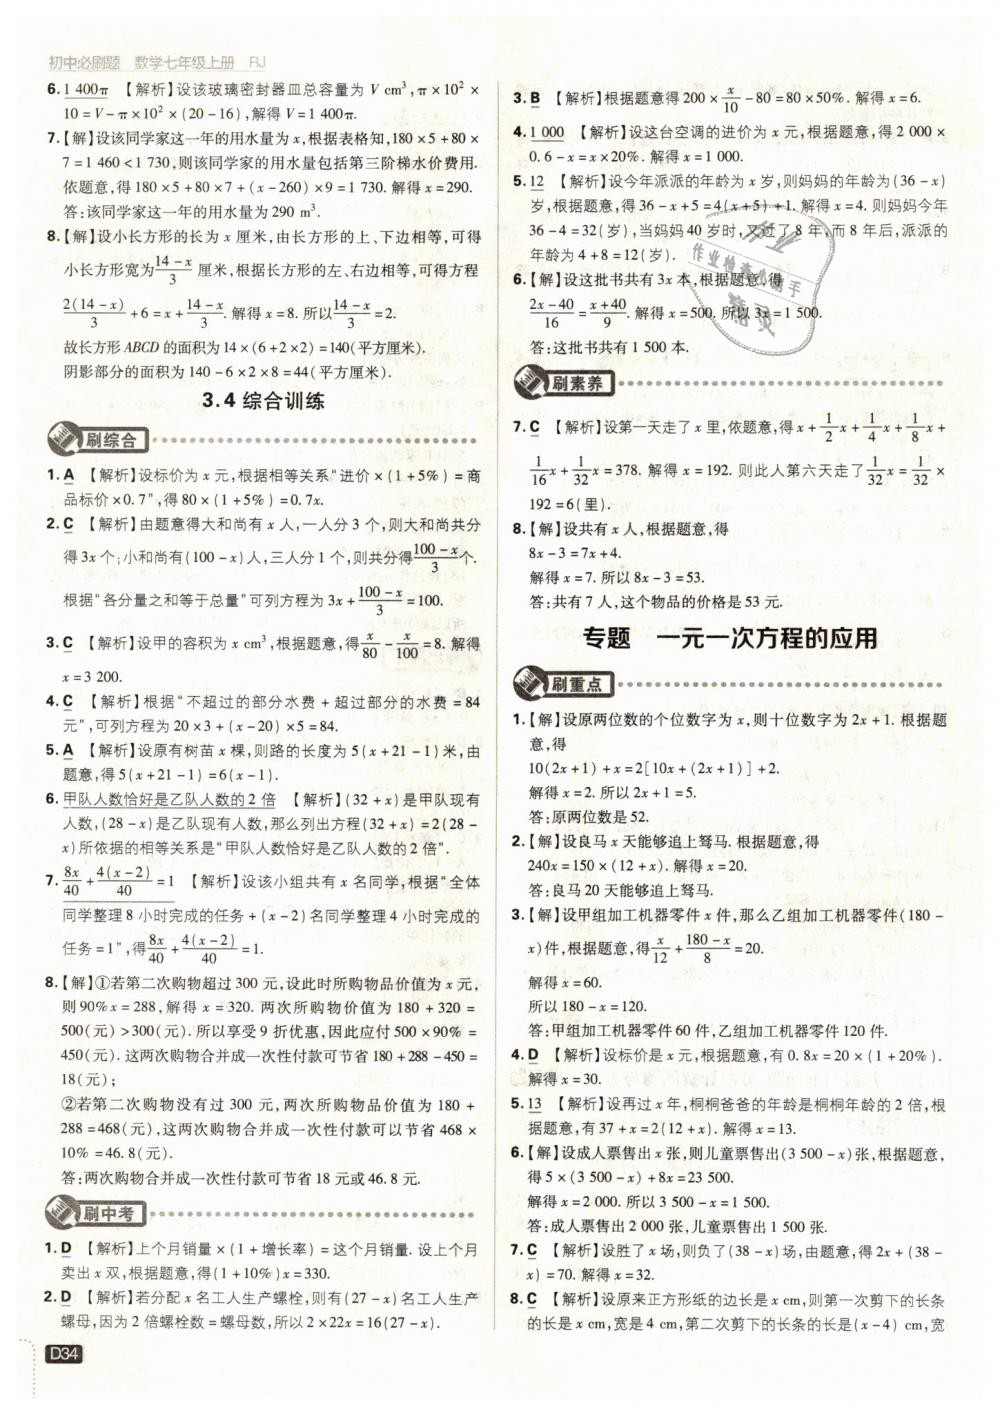 初中必刷题 数学七年级上册 RJ
6. 1 400π 【解析】设该玻璃密封器皿总容量为 V cm³,π×10²×
10=V-π×10²×(20-16),解得 V=1 400π.
7.【解】设该同学家这一年的用水量为 x,根据表格知,180×5+80×
7=1 460<1 730,则该同学家的用水量包括第三阶梯水价费用.
依题意,得 180×5+80×7+(x-260)×9=1 730. 解得 x=290.
答:该同学家这一年的用水量为 290 m³.
8.【解】设小长方形的长为 x 厘米,由长方形的上、下边相等,可得
小长方形宽为(14-x)/3 厘米,根据长方形的左、右边相等,可得方程
2(14-x)/3+6=x+(14-x)/3. 解得 x=8. 所以(14-x)/3=2.
故长方形 ABCD 的面积为 14×(6+2×2)=140(平方厘米).
阴影部分的面积为 140-6×2×8=44(平方厘米).
3.4 综合训练
刷综合
1. A 【解析】设标价为 x 元,根据相等关系“进价×(1+5%)=商
品标价×0.7”,得 80×(1+5%)=0.7x.
2. C 【解析】由题意得大和尚有 x 人,一人分 3 个,则大和尚共分
得 3x 个;小和尚有(100-x)人,三人分 1 个,则共分得(100-x)/3个.
根据“各分量之和等于总量”可列方程为 3x+(100-x)/3=100.
3. C 【解析】设甲的容积为 x cm³,根据题意,得x/80-x/100=8. 解得
x=3 200.
4. C 【解析】根据“不超过的部分水费+超过部分的水费=84
元”,可列方程为 20×3+(x-20)×5=84.
5. A 【解析】设原有树苗 x 棵,则路的长度为 5(x+21-1)米,由
题意,得 5(x+21-1)=6(x-1).
6. 甲队人数恰好是乙队人数的 2 倍 【解析】(32+x)是甲队现有
人数,(28-x)是乙队现有人数,那么列出方程(32+x)=2(28-
x)所依据的相等关系是“甲队人数恰好是乙队人数的 2 倍”.
7. 8x/40+4(x-2)/40=1 【解析】设该小组共有 x 名同学,根据“全体
同学整理 8 小时完成的任务+(x-2)名同学整理 4 小时完成的
任务=1”,得8x/40+4(x-2)/40=1.
8.【解】①若第二次购物超过 300 元,设此时所购物品价值为 x 元,
则 90%x=288,解得 x=320. 两次所购物价值为 180+320=
500(元)>300(元). 所以享受 9 折优惠,因此应付 500×90%=
450(元). 这两次购物合并成一次性付款可节省 180+288-450=
18(元);
②若第二次购物没有过 300 元,两次所购物品价值为 180+
288=468(元),这两次购物合并成一次性付款可以节省 468×
10%=46.8(元).
答:两次购物合并成一次性付款可节省 18 元或 46.8 元.
刷中考
1. D 【解析】上个月销量×(1+增长率)=这个月销量. 设上个月
卖出 x 双,根据题意,得(1+10%)x=330.
2. D 【解析】若分配 x 名工人生产螺栓,则有(27-x)名工人生产
螺母,因为 2 倍螺栓数=螺母数,所以 2×22x=16(27-x).
D34
3. B 【解析】根据题意得 200×x/10-80=80×50%. 解得 x=6.
4. 1 000 【解析】设这台空调的进价为 x 元,根据题意,得 2 000×
0.6-x=x×20%. 解得 x=1 000.
5. 12 【解析】设今年派派的年龄为 x 岁,则妈妈的年龄为(36-x)
岁,根据题意,得 36-x+5=4(x+5)+1. 解得 x=4. 则妈妈今年
36-4=32(岁),当妈妈 40 岁时,又过了 8 年,而 8 年后,派派的
年龄为 4+8=12(岁).
6.【解】设这批书共有 3x 本,根据题意,得
(2x-40)/16=(x+40)/9. 解得 x=500. 所以 3x=1 500.
答:这批书共有 1 500 本.
刷素养
7. C 【解析】设第一天走了 x 里,依题意,得 x+1/2x+1/4x+1/8x+
1/16x+1/32x=378. 解得 x=192. 则此人第六天走了1/32x=1/32×
192=6(里).
8.【解】设共有 x 人,根据题意,得
8x-3=7x+4.
解得 x=7. 所以 8x-3=53.
答:共有 7 人,这个物品的价格是 53 元.
专题 一元一次方程的应用
刷重点
1.【解】设原两位数的个位数字为 x,则十位数字为 2x+1. 根据题
意,得
10(2x+1)+x=2[10x+(2x+1)]+2.
解得 x=2. 所以 2x+1=5.
答:原两位数是 52.
2.【解】设良马 x 天能够追上驽马. 根据题意,得
240x=150×(12+x). 解得 x=20.
答:良马 20 天能够追上驽马.
3.【解】设甲组加工机器零件 x 件,那么乙组加工机器零件(180-
x)件,根据题意,得x/12+(180-x)/8=20.
解得 x=60.
所以 180-x=120.
答:甲组加工机器零件 60 件,乙组加工机器零件 120 件.
4. D 【解析】设标价是 x 元,根据题意,有 0.8x=20×(1+20%).
解得 x=30.
5. 13 【解析】设再过 x 年,桐桐爸爸的年龄是桐桐年龄的 2 倍,根
据题意,有 37+x=2(12+x). 解得 x=13.
6.【解】设成人票售出 x 张,则儿童票售出(3 500-x)张,根据题意,
得 5×(3 500-x)+8x=23 500.
解得 x=2 000. 所以 3 500-x=1 500.
答:成人票售出 2 000 张,儿童票售出 1 500 张.
7. C 【解析】设胜了 x 场,则负了(38-x)场,由题意,得 2x+(38-
x)=70. 解得 x=32.
8. C 【解析】设原来正方形纸的边长是 x cm,则第一次剪下的长条
的长是 x cm,宽是 4 cm,第二次剪下的长条的长是(x-4) cm,宽